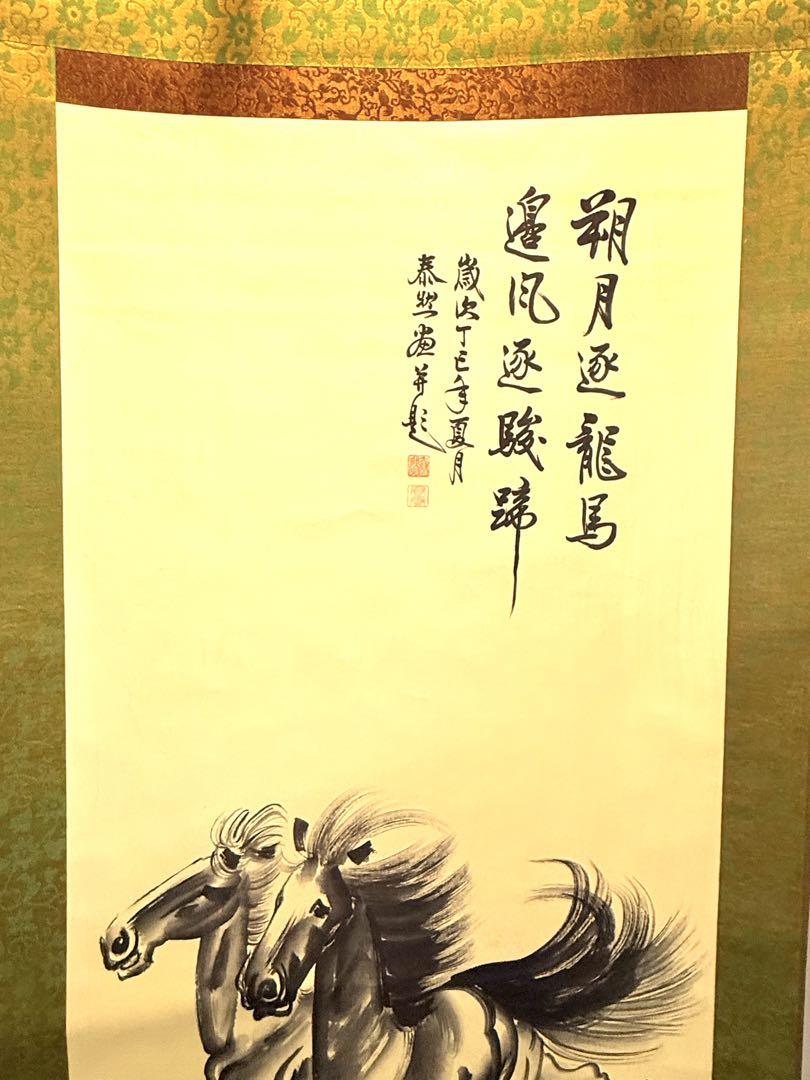 朔月逐龍馬
邊风逐駿蹄
歲次丁巳年夏月
泰然画并题